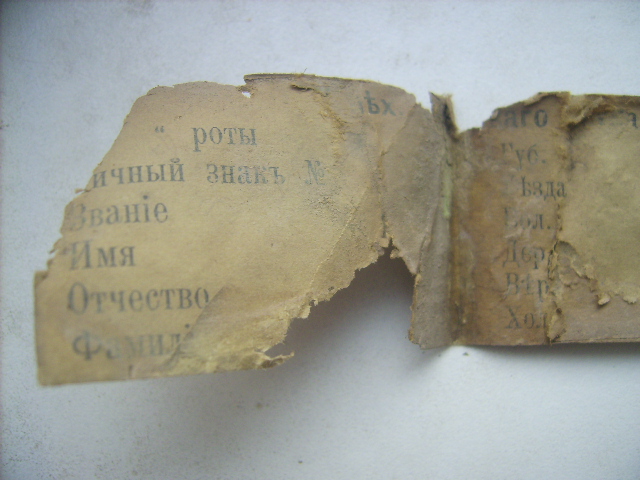 “ роты
ичный знакъ №
Званіе
Имя
Отчество
Фамилі
ѣх
аго
Губ.
ѣзда
Вол.
Дер.
Вѣр
Хол